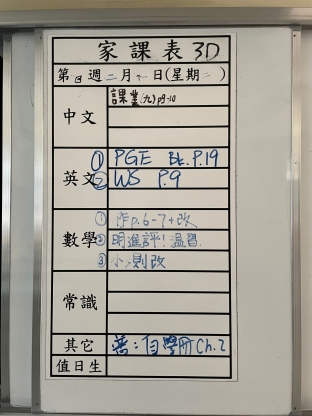 家課表 3D
第四週二月十一日(星期二)
中文
課業(九) p9-10
英文
① PGE Bk. P.19
② WS P.9
數學
① 作p.6-7+改
② 明進評!温習.
③ 小測改
常識
其它
普:自學冊Ch.2
值日生